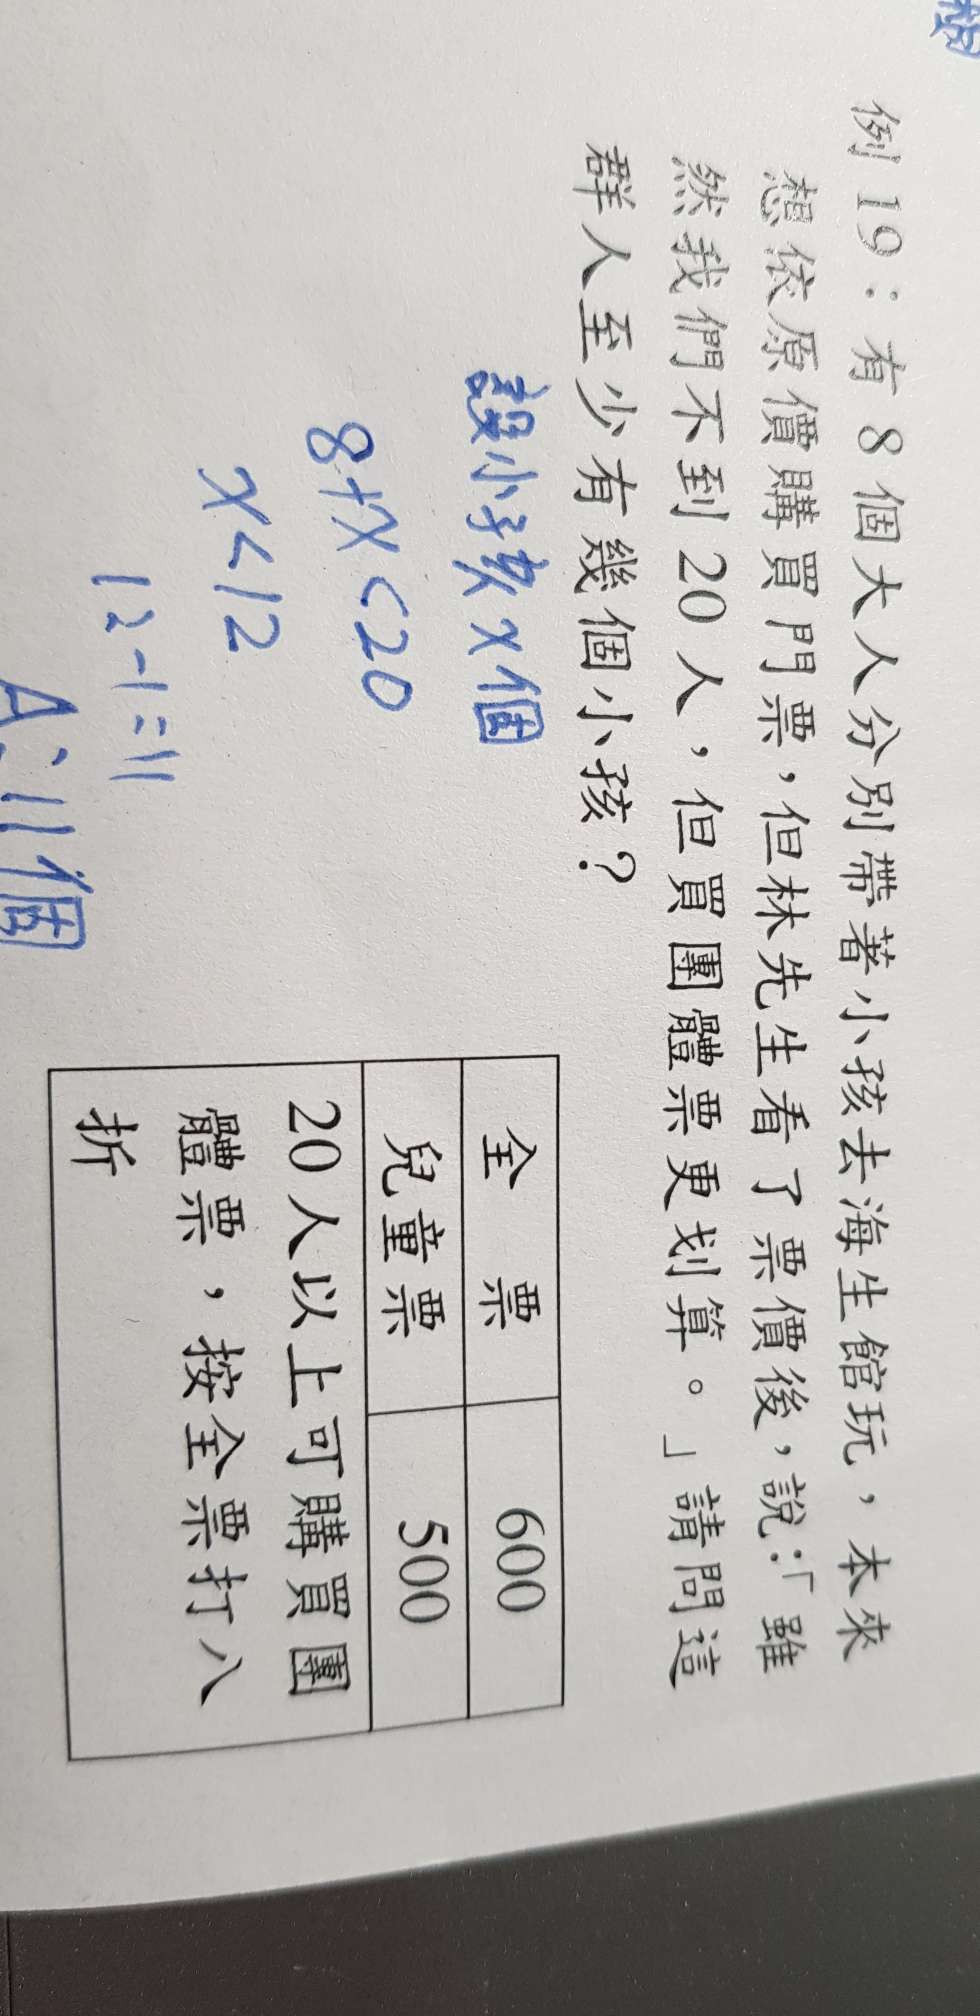 例19：有8個大人分別帶著小孩去海生館玩，本來
想依原價購買門票，但林先生看了票價後，說：「雖
然我們不到20人，但買團體票更划算。」請問這
群人至少有幾個小孩？
設小孩x個
8+x<20
x<12
12-1=11
A：11個
全 票 600
兒童票 500
20人以上可購買團
體票，按全票打八
折